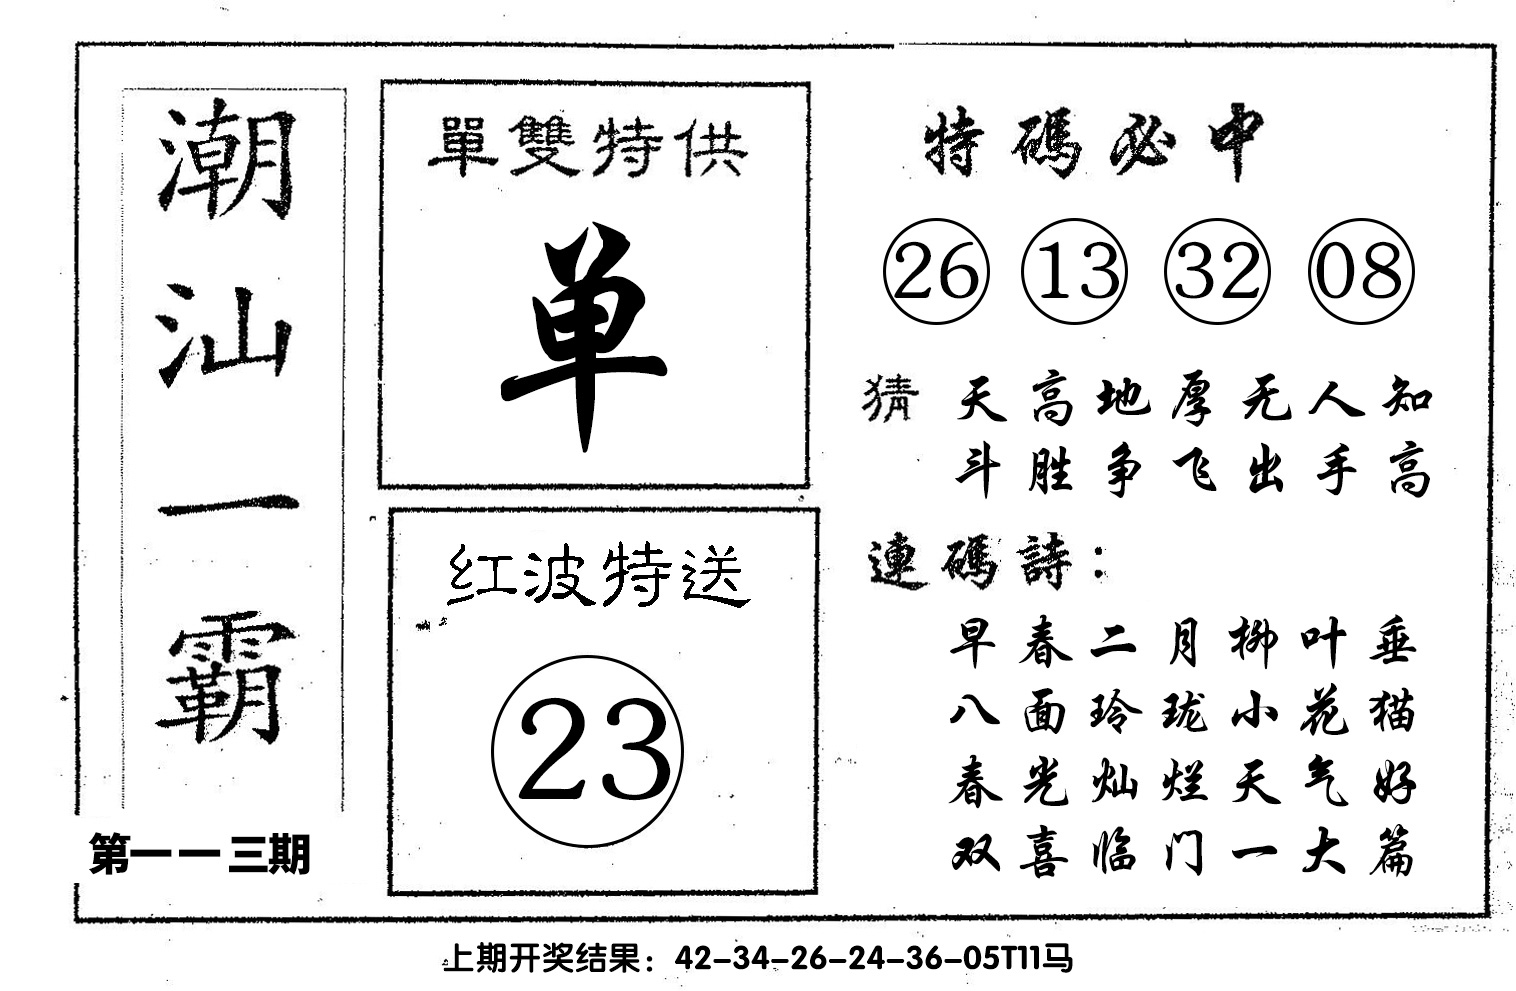 潮汕一霸
第一一三期
單雙特供
单
红波特送
23
特碼必中
26 13 32 08
猜 天高地厚无人知
斗胜争飞出手高
連碼詩：
早春二月柳叶垂
八面玲珑小花猫
春光灿烂天气好
双喜临门一大篇
上期开奖结果：42-34-26-24-36-05T11马